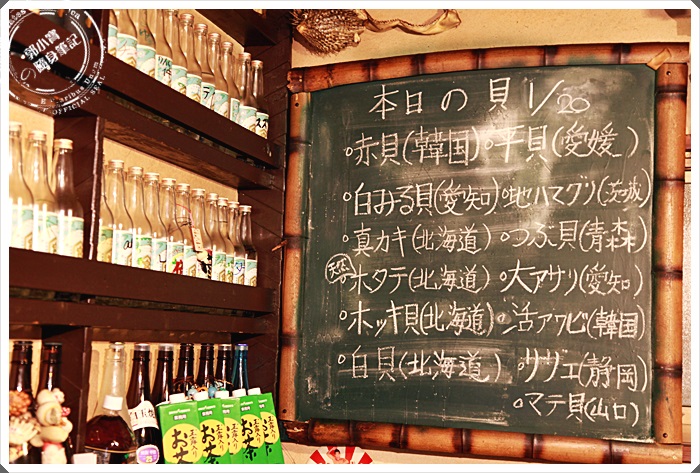 本日の貝 1/20
赤貝(韓国) 平貝(愛媛)
白みる貝(愛知) 地ハマグリ(茨城)
真カキ(北海道) つぶ貝(青森)
天然 ホタテ(北海道) 大アサリ(愛知)
ホッキ貝(北海道) 活アワビ(韓国)
白貝(北海道) サザエ(静岡)
マテ貝(山口)
郭小寶
の隨身筆記
OFFICIAL SEAL
お茶 お茶 お茶